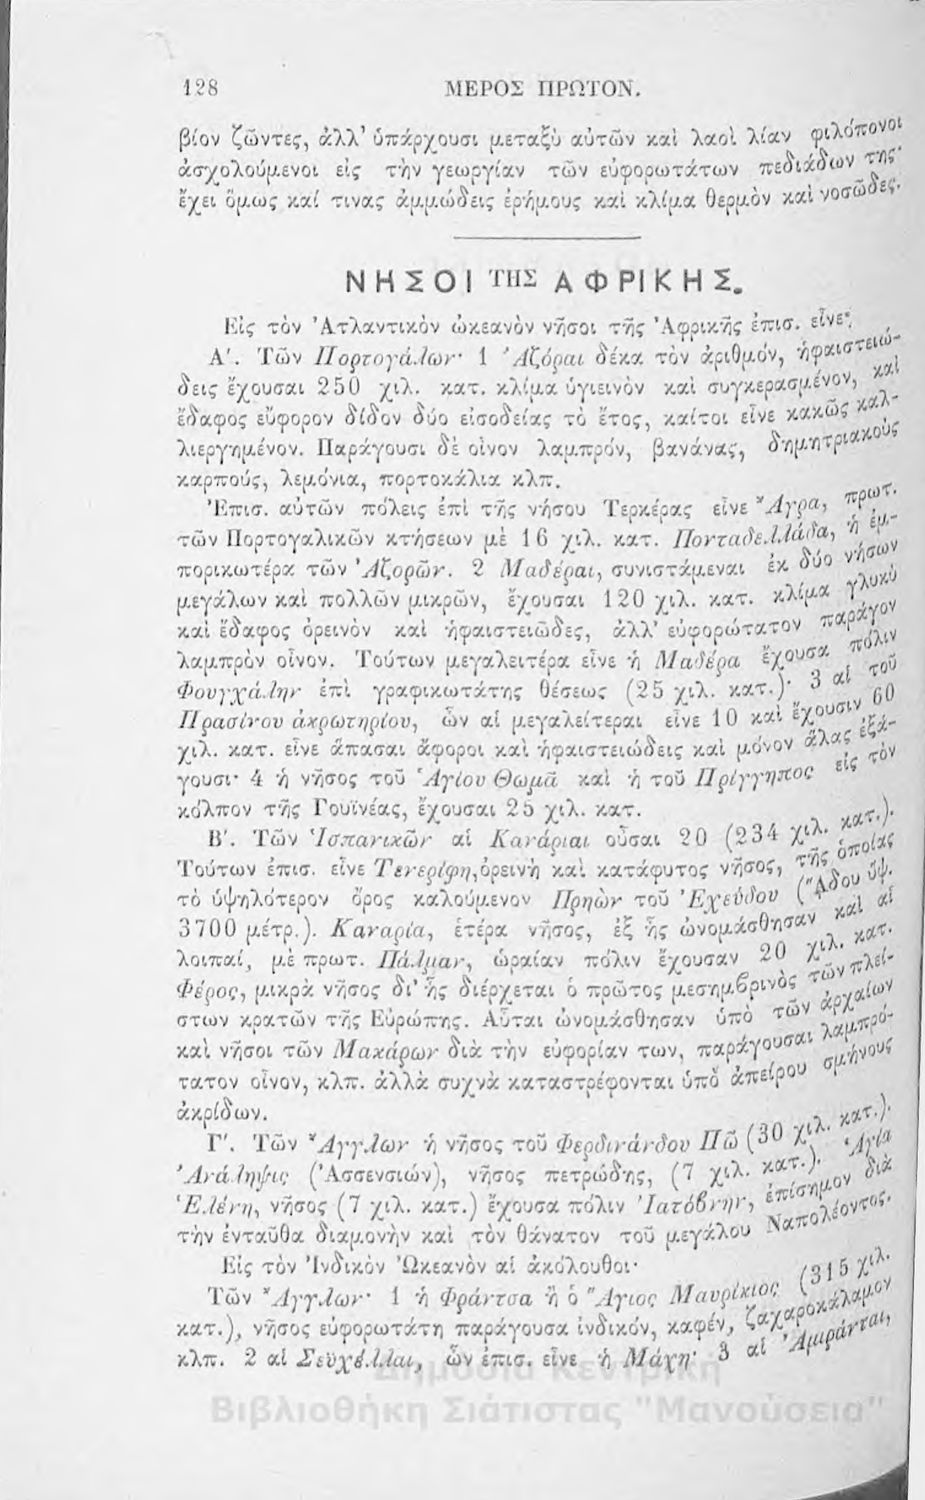 128 ΜΕΡΟΣ ΠΡΩΤΟΝ.
βίον ζῶντες, ἀλλ' ὑπάρχουσι μεταξὺ αὐτῶν καὶ λαοὶ λίαν φιλόπονοι
ἀσχολούμενοι εἰς τὴν γεωργίαν τῶν εὐφορωτάτων πεδιάδων της·
ἔχει ὅμως καί τινας ἀμμώδεις ἐρήμους καὶ κλίμα θερμὸν καὶ νοσῶδες.
ΝΗΣΟΙ ΤΗΣ ΑΦΡΙΚΗΣ.
Εἰς τὸν Ἀτλαντικὸν ὠκεανὸν νῆσοι τῆς Ἀφρικῆς ἐπισ. εἶνε·
Α΄. Τῶν Πορτογάλων· 1 Ἀζόραι δέκα τὸν ἀριθμόν, ἡφαιστειώ-
δεις ἔχουσαι 250 χιλ. κατ. κλίμα ὑγιεινὸν καὶ συγκερασμένον, καὶ
ἔδαφος εὔφορον δίδον δύο εἰσοδείας τὸ ἔτος, καίτοι εἶνε κακῶς καλ-
λιεργημένον. Παράγουσι δὲ οἶνον λαμπρόν, βανάνας, δημητριακοὺς
καρπούς, λεμόνια, πορτοκάλια κλπ.
Ἐπισ. αὐτῶν πόλεις ἐπὶ τῆς νήσου Τερκέρας εἶνε Ἄγρα, πρωτ.
τῶν Πορτογαλικῶν κτήσεων μὲ 16 χιλ. κατ. Πονταδελλάδα, ἡ ἐμ-
πορικωτέρα τῶν Ἀζορῶν. 2 Μαδέραι, συνιστάμεναι ἐκ δύο νήσων
μεγάλων καὶ πολλῶν μικρῶν, ἔχουσαι 120 χιλ. κατ. κλίμα γλυκὺ
καὶ ἔδαφος ὀρεινὸν καὶ ἡφαιστειῶδες, ἀλλ' εὐφορώτατον παράγον
λαμπρὸν οἶνον. Τούτων μεγαλειτέρα εἶνε ἡ Μαδέρα ἔχουσα πόλιν
Φουγχάλην ἐπὶ γραφικωτάτης θέσεως (25 χιλ. κατ.)· 3 αἱ τοῦ
Πρασίνου ἀκρωτηρίου, ὧν αἱ μεγαλείτεραι εἶνε 10 καὶ ἔχουσιν 60
χιλ. κατ. εἶνε ἅπασαι ἄφοροι καὶ ἡφαιστειώδεις καὶ μόνον ἅλας ἐξά-
γουσι· 4 ἡ νῆσος τοῦ Ἁγίου Θωμᾶ καὶ ἡ τοῦ Πρίγγηπος εἰς τὸν
κόλπον τῆς Γουϊνέας, ἔχουσαι 25 χιλ. κατ.
Β΄. Τῶν Ἱσπανικῶν αἱ Κανάριαι οὖσαι 20 (234 χιλ. κατ.).
Τούτων ἐπισ. εἶνε Τενερίφη, ὀρεινὴ καὶ κατάφυτος νῆσος, τῆς ὁποίας
τὸ ὑψηλότερον ὄρος καλούμενον Πρηὼν τοῦ Ἐχεύδου (Ἅδου ὕψ.
3700 μέτρ.). Καναρία, ἑτέρα νῆσος, ἐξ ἧς ὠνομάσθησαν καὶ αἱ
λοιπαί, μὲ πρωτ. Πάλμαν, ὡραίαν πόλιν ἔχουσαν 20 χιλ. κατ.
Φέρος, μικρὰ νῆσος δι' ἧς διέρχεται ὁ πρῶτος μεσημβρινὸς τῶν πλεί-
στων κρατῶν τῆς Εὐρώπης. Αὗται ὠνομάσθησαν ὑπὸ τῶν ἀρχαίων
καὶ νῆσοι τῶν Μακάρων διὰ τὴν εὐφορίαν των, παράγουσαι λαμπρό-
τατον οἶνον, κλπ. ἀλλὰ συχνὰ καταστρέφονται ὑπὸ ἀπείρου σμήνους
ἀκρίδων.
Γ΄. Τῶν Ἄγγλων ἡ νῆσος τοῦ Φερδινάνδου Πῶ (30 χιλ. κατ.).
Ἀνάληψις (Ἀσσενσιών), νῆσος πετρώδης, (7 χιλ. κατ.). Ἁγία
Ἑλένη, νῆσος (7 χιλ. κατ.) ἔχουσα πόλιν Ἰατόβνην, ἐπίσημον διὰ
τὴν ἐνταῦθα διαμονὴν καὶ τὸν θάνατον τοῦ μεγάλου Ναπολέοντος.
Εἰς τὸν Ἰνδικὸν Ὠκεανὸν αἱ ἀκόλουθοι·
Τῶν Ἄγγλων· 1 ἡ Φράντσα ἢ ὁ Ἅγιος Μαυρίκιος (315 χιλ.
κατ.), νῆσος εὐφορωτάτη παράγουσα ἰνδικόν, καφέν, ζαχαροκάλαμον
κλπ. 2 αἱ Σεϋχέλλαι, ὧν ἐπισ. εἶνε ἡ Μάχη· 3 αἱ Ἀμιράνται,
Δημόσια Κεντρική
Βιβλιοθήκη Σιάτιστας "Μανούσεια"